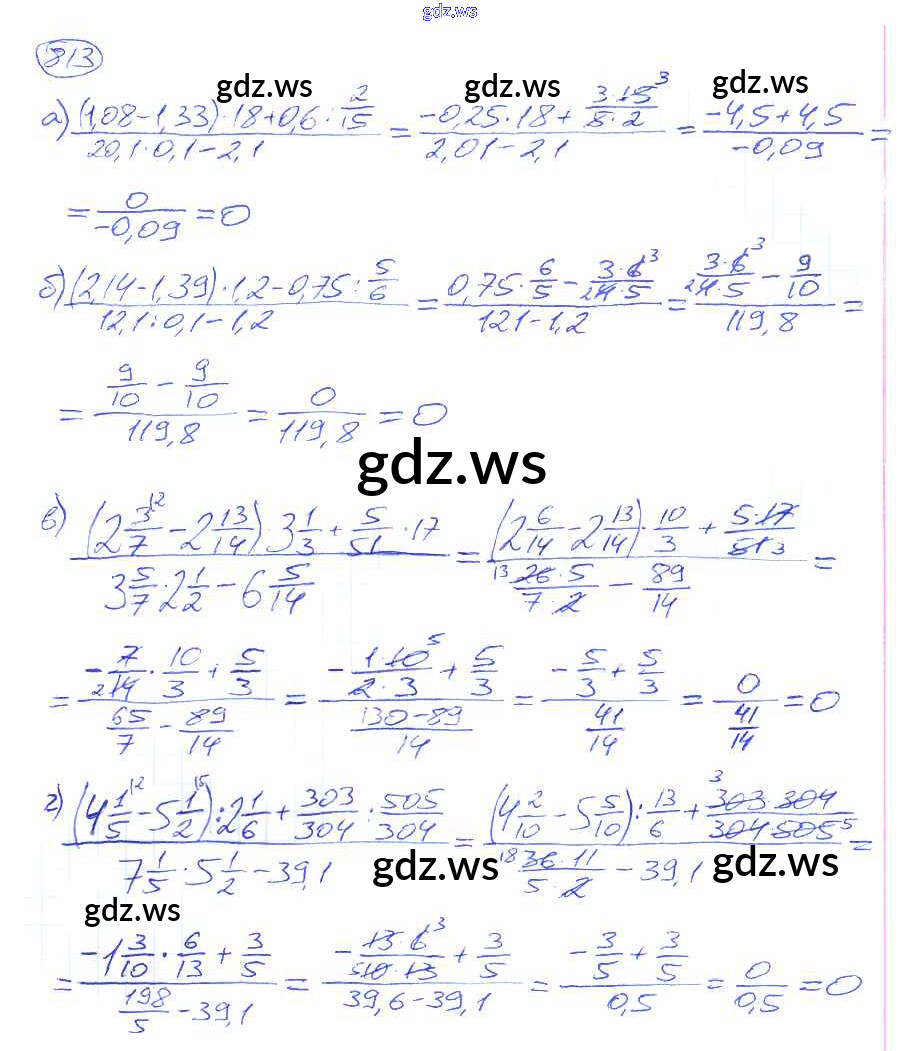 gdz.ws
813
gdz.ws gdz.ws gdz.ws
а) ((1,08-1,33)·18+0,6:2/15)/(20,1·0,1-2,1) = (-0,25·18+(3·15 3)/(5·2))/(2,01-2,1) = (-4,5+4,5)/(-0,09) =
= 0/(-0,09) = 0
б) ((2,14-1,39)·1,2-0,75:5/6)/(12,1:0,1-1,2) = (0,75·6/5-(3·6 3)/(2 4·5))/(121-1,2) = ((3·6 3)/(2 4·5)-9/10)/(119,8) =
= (9/10-9/10)/(119,8) = 0/(119,8) = 0
gdz.ws
в) ((2 3/7 |2 - 2 13/14)·3 1/3+5/51·17)/(3 5/7·2 1/2-6 5/14) = ((2 6/14-2 13/14)·10/3+(5·17)/(51 3))/((13 26·5)/(7·2)-89/14) =
= (-7/(2 14)·10/3+5/3)/(65/7-89/14) = (-(1·10 5)/(2·3)+5/3)/((130-89)/14) = (-5/3+5/3)/(41/14) = 0/(41/14) = 0
г) ((4 1/5 |2 - 5 1/2 |5):2 1/6+303/304:505/304)/(7 1/5·5 1/2-39,1) = ((4 2/10-5 5/10):13/6+(3 303·304)/(304·505 5))/((18 36·11)/(5·2)-39,1) =
gdz.ws gdz.ws
gdz.ws
= (-1 3/10·6/13+3/5)/(198/5-39,1) = (-(13·6 3)/(5 10·13)+3/5)/(39,6-39,1) = (-3/5+3/5)/(0,5) = 0/(0,5) = 0